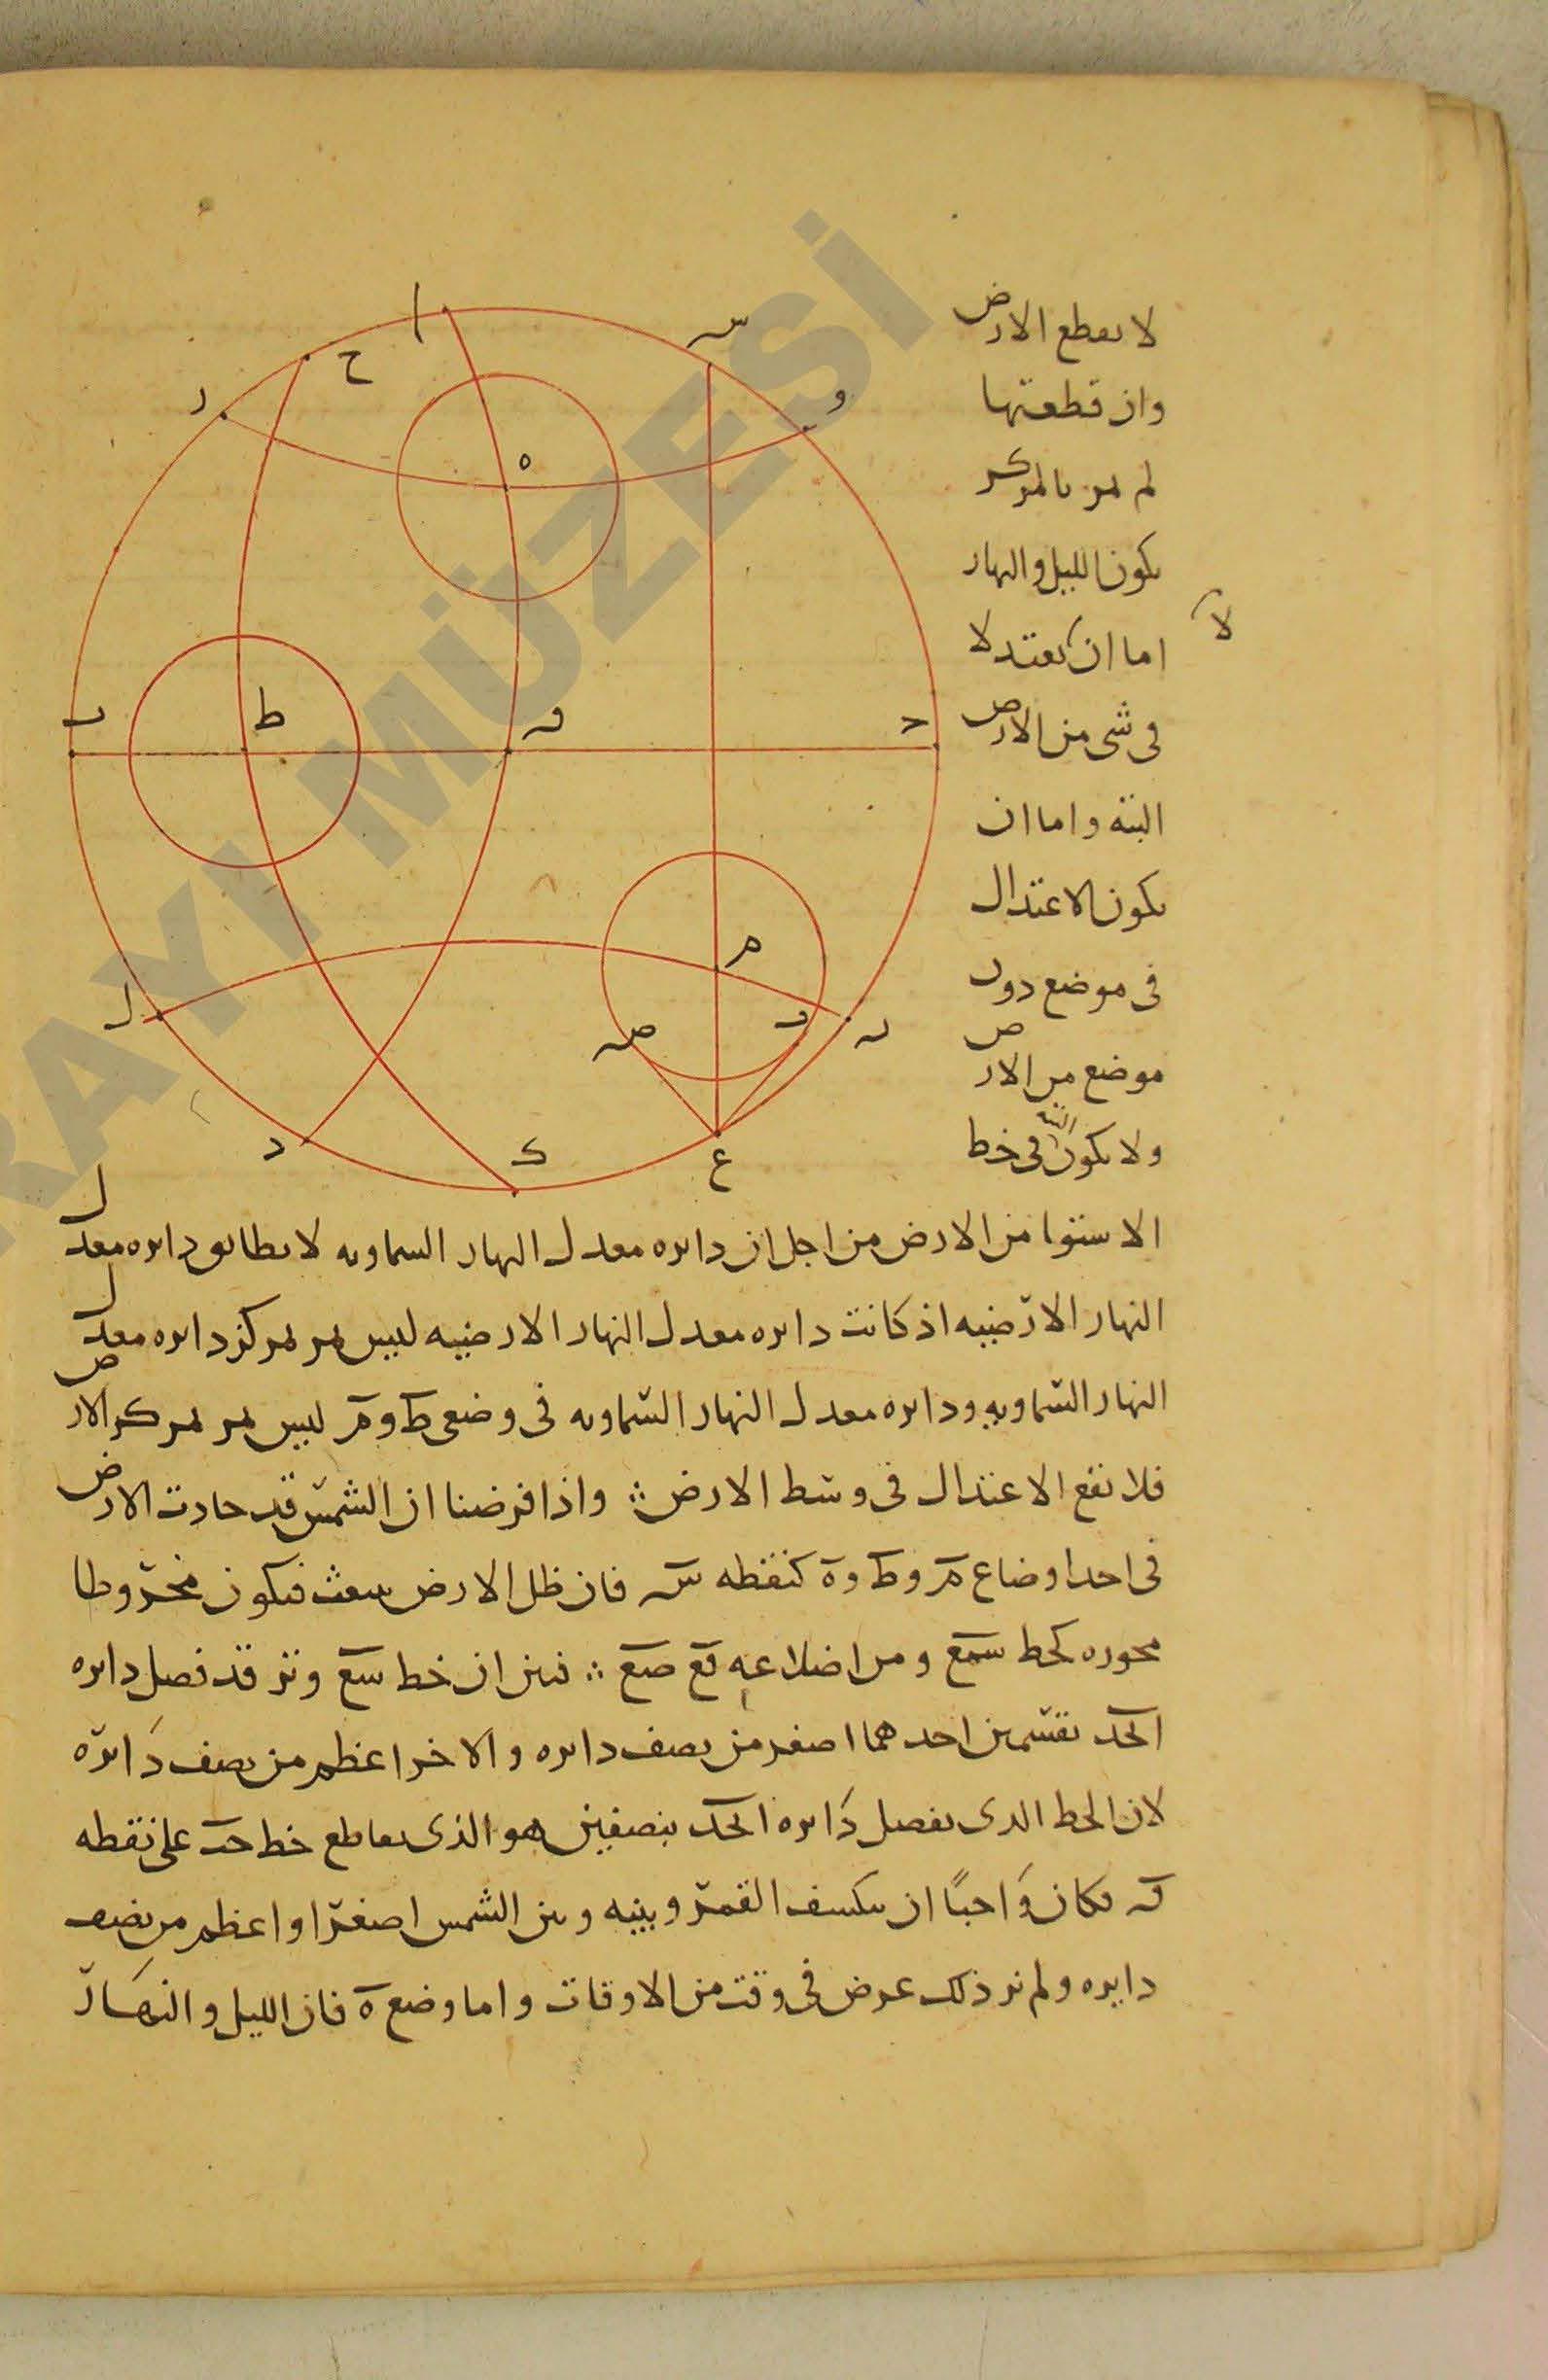 لا يقطع الارض
وان قطعتها
لم يمر بالمركز
يكون الليل والنهار
لا
اما ان يعتدلا
فى شى من الارض
البته واما ان
يكون الاعتدال
فى موضع دون
موضع من الارض
ولا يكون البته فى خط
الاستوا من الارض من اجل ان دايره معدل النهار السماويه لا يطابق دايره معدل
النهار الارضيه اذ كانت دايره معدل النهار الارضيه ليس يمر بمركز دايره معدل
النهار السماويه ودايره معدل النهار السماويه فى وضعى ط و م ليس يمر بمركز الارض
فلا تقع الاعتدال فى وسط الارض ∴ واذا فرضنا ان الشمس قد حاذت الارض
فى احد اوضاع م و ط و ه كنقطه س فان ظل الارض سعث فيكون مخروطا
محوره كخط سمع ومن اضلاعه قع صع ∴ فبين ان خط سع ونر قد فصل دايره
ابجد بقسمين احدهما اصغر من نصف دايره والاخر اعظم من نصف دايره
لان الخط الذى يفصل دايره ابجد بنصفين هو الذى يقاطع خط حب على نقطه
ف فكان واجبا ان ينكسف القمر وبينه وبين الشمس اصغر او اعظم من نصف
دايره ولم نر ذلك عرض فى وقت من الاوقات واما وضع ه فان الليل والنهار
ا
س
ح
ر
و
ه
ب
ط
ف
ج
م
ل
ص
ن
د
ك
ع
SARAYI MÜZESİ